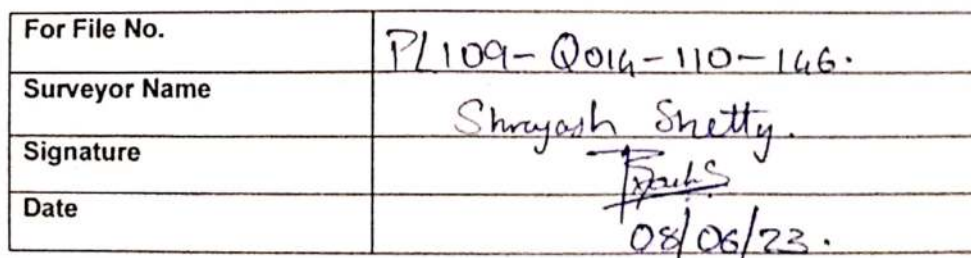 For File No. PL109-Q014-110-146.
Surveyor Name Shrayash Shetty.
Signature
Date 08/06/23.